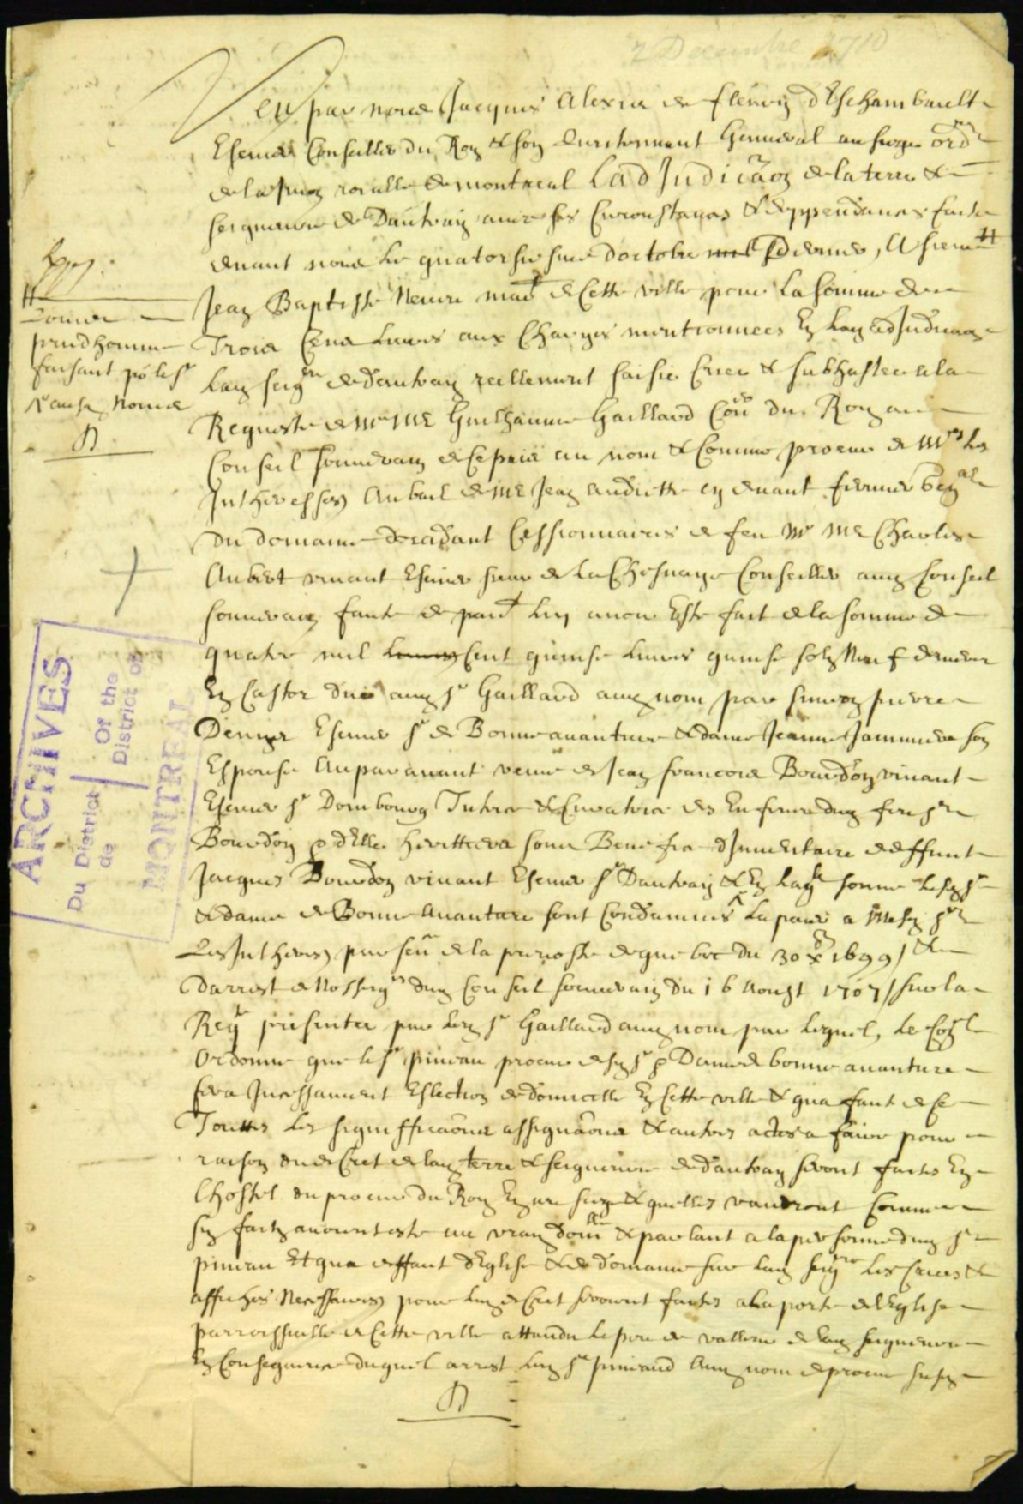 2 Decembre 1710
Veu par nous Jacques Alexis de fleury dEschambault
Escuier Conseiller du Roy & son Lieutenant General au siege ordre
de la Juon roialle de montreal Ladjudicaon de la terre &
seigneurie de Dautray avec ses Circonstances & deppendances faite
devant nous le quatorsie jour doctobre dernier, A sieur #
Jean Baptiste Neveu mard de Cette ville pour La somme de
Trois Cens Livres aux Charges mentionnees En lad adjudicaon
Lad seigrie de dautray reellement saisie Criee & subhastee a la
Requeste de Mre ME Guilhaume Gaillard Coner du Roy au
Conseil souverain de ce païs au nom & Comme procur de Mrs les
Intheressez Au bail de ME Jean cy devant fermier genal
du domaine doccidant Cessionnaires de feu Mr ME Charles
Aubert vivant Escuier sieur de LaChesnaye Conseiller aud Conseil
souverain faute de paiemt luy avoir Esté fait de la somme de
quatre mil Cent quinse Livres quinse sols Neuf deniers
En Castor deüe aud sr Gaillard aud nom par pierre
Denys Escuier sr de Bonneavanture & dame Jeanne Jannière son
Espouse Auparavant veuve de Jean francois Bourdon vivant
Escuier sr Dombourg Tutrice & Curatrice des Enfens dud feu sr
Bourdon & d'Elle heritiers sous Beneffice dInventaire de deffunt
Jacques Bourdon vivant Escuier sr Dautray & En laqle somme lesd sr
& dame de Bonne Avanture sont Condamnés La paier a Mesd srs
Les Intheressez par senc de la prevosté de quebec du 30 xbre 1699 / &
Darrest de Nosseigrs dud Conseil souverain du 16 Aoust 1707 / sur la
Reqte presentée par led sr Gaillard aud nom par lequel, Le Conseil
Ordonne que le sr pinaud procur desd sr & Dame de bonne avanture
fera Incessament Eslection de domicille En Cette ville & qua faut de Ce
Touttes Les significaons assignaons & autres actes a faire pour
raison du deCret de lad terre & seigneurie de dautray seront faites En
Lhostel du procur du Roy En ce siege & quelles vaudront Comme
sy faites avoient esté au vray domle & parlant a la personne dud sr
pinaud Et qua deffaut dEglise & de domaine sur lad seigrie Les Criees &
affiches Necessaires pour led deCret seroient faites a la porte de lEglise
parroissialle de Cette ville attandu le peu de valleur de lad seigneurie
En Consequence duquel arrest led sr pinaud Aud nom de procur susd
D
#
Louis
prudhomme
faisant po. le sr
Neveu
D
ARCHIVES
Du District | Of the
de | District of
MONTREAL